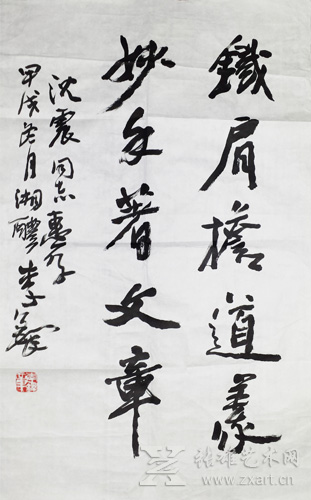 鐵肩擔道義
妙手著文章
沈震同志惠存
甲戌冬月湘醴李鐸
艺术网
www.zxart.cn